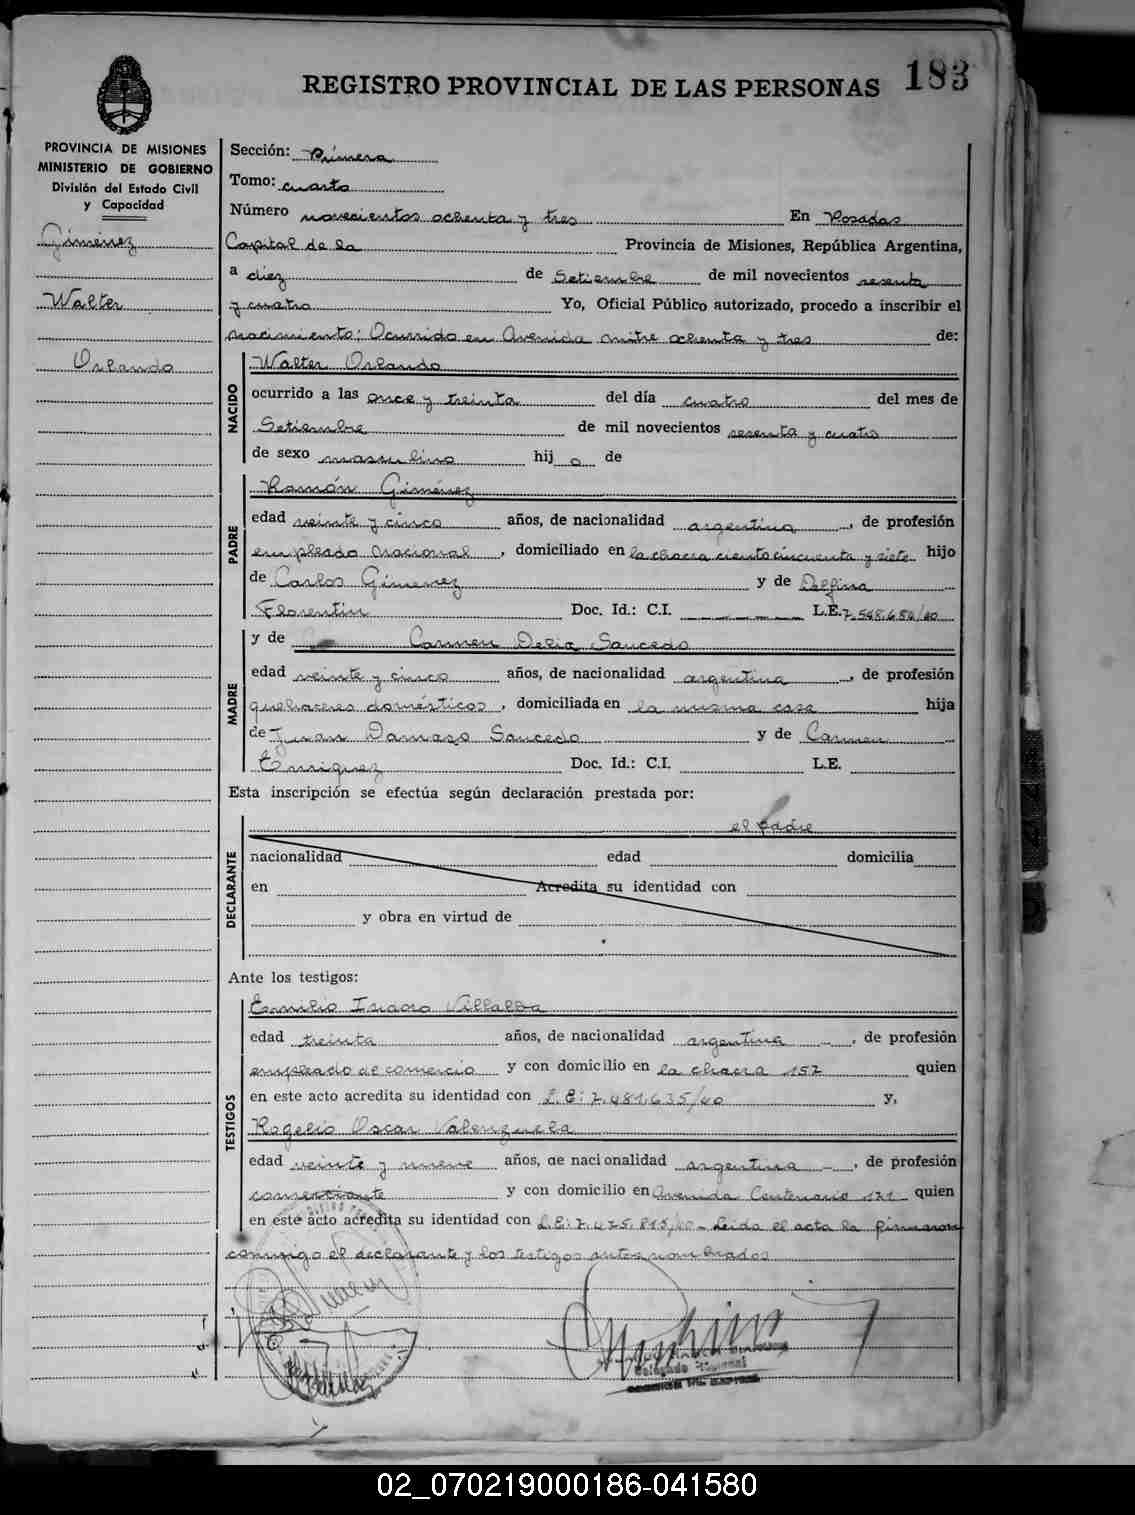 183
REGISTRO PROVINCIAL DE LAS PERSONAS
PROVINCIA DE MISIONES
MINISTERIO DE GOBIERNO
División del Estado Civil
y Capacidad
Giménez
Walter
Orlando
Sección: Primera
Tomo: cuarto
Número novecientos ochenta y tres En Posadas
Capital de la Provincia de Misiones, República Argentina,
a diez de Setiembre de mil novecientos sesenta
y cuatro Yo, Oficial Público autorizado, procedo a inscribir el
nacimiento: Ocurrido en Avenida mitre ochenta y tres de:
NACIDO
Walter Orlando
ocurrido a las once y treinta del día cuatro del mes de
Setiembre de mil novecientos sesenta y cuatro
de sexo masculino hijo de
PADRE
Ramón Giménez
edad veinte y cinco años, de nacionalidad argentina, de profesión
empleado nacional, domiciliado en la chacra ciento cincuenta y siete hijo
de Carlos Gimenez y de Delfina
Florentin Doc. Id.: C.I. L.E. 7.548.680/40
MADRE
y de Carmen Delia Saucedo
edad veinte y cinco años, de nacionalidad argentina, de profesión
quehaceres domésticos, domiciliada en la misma casa hija
de Juan Damaso Saucedo y de Carmen
Enriquez Doc. Id.: C.I. L.E.
Esta inscripción se efectúa según declaración prestada por:
DECLARANTE
el padre
nacionalidad edad domicilia
en Acredita su identidad con
y obra en virtud de
Ante los testigos:
TESTIGOS
Emilio Isidoro Villalba
edad treinta años, de nacionalidad argentina, de profesión
empleado de comercio y con domicilio en la chacra 157 quien
en este acto acredita su identidad con L.E: 7.481.635/40 y,
Rogelio Oscar Valenzuela
edad veinte y nueve años, de nacionalidad argentina, de profesión
comerciante y con domicilio en Avenida Centenario 121 quien
en este acto acredita su identidad con L.E: 7.475.815/40 - Leida el acta la firmaron
conmigo el declarante y los testigos antes nombrados
Delegado
02_070219000186-041580